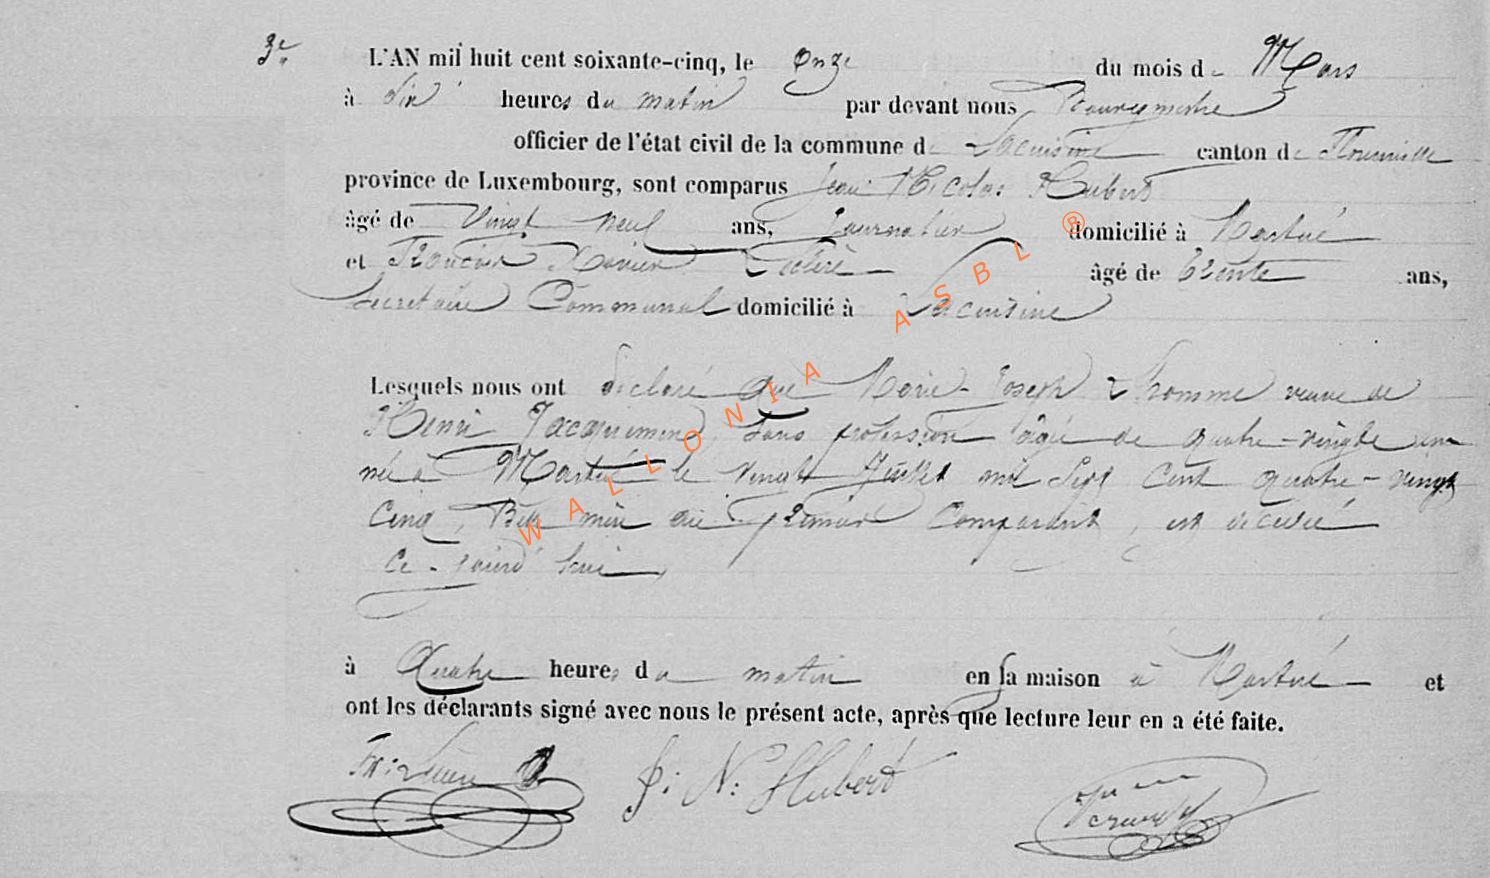 3e
L'AN mil huit cent soixante-cinq, le Onze du mois de Mars
à dix heures du matin par devant nous Bourgmestre
officier de l'état civil de la commune de Lacuisine canton de Florenville
province de Luxembourg, sont comparus Jean Nicolas Hubert
âgé de Vingt neuf ans, Journalier domicilié à Martué
et François Xavier âgé de trente ans,
Secrétaire Communal domicilié à Lacuisine
Lesquels nous ont déclaré que Marie-Joseph Lhomme veuve de
Henri Jacquemin, sans profession âgée de quatre-vingts un
née à Martué le vingt Juillet mil Sept Cent quatre-vingt
Cinq, Belle mère du premier Comparant, est décédée
Ce-jourd'hui,
à Quatre heures du matin en sa maison à Martué et
ont les déclarants signé avec nous le présent acte, après que lecture leur en a été faite.
J: N: Hubert
WALLONIA ASBL ®